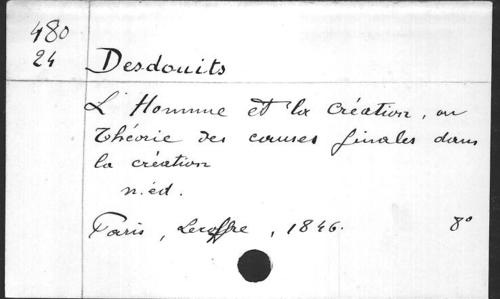 480
24
Desdouits
L'Homme et la Création, ou
Théorie des causes finales dans
la création
n. éd.
Paris, Lecoffre, 1846. 8°